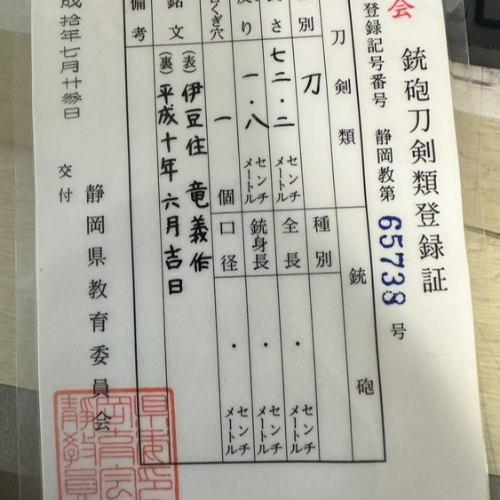 会
銃砲刀剣類登録証
登録記号番号 静岡教第 65738 号
刀剣類
銃砲
別 刀
さ 七二・二 センチメートル
反り 一・八 センチメートル
くぎ穴 一 個
種別
全長 ・ センチメートル
銃身長 ・ センチメートル
口径 ・ センチメートル
銘文 (表) 伊豆住 竜義作
(裏) 平成十年六月吉日
備考
成拾年七月廿参日
交付
静岡県教育委員会